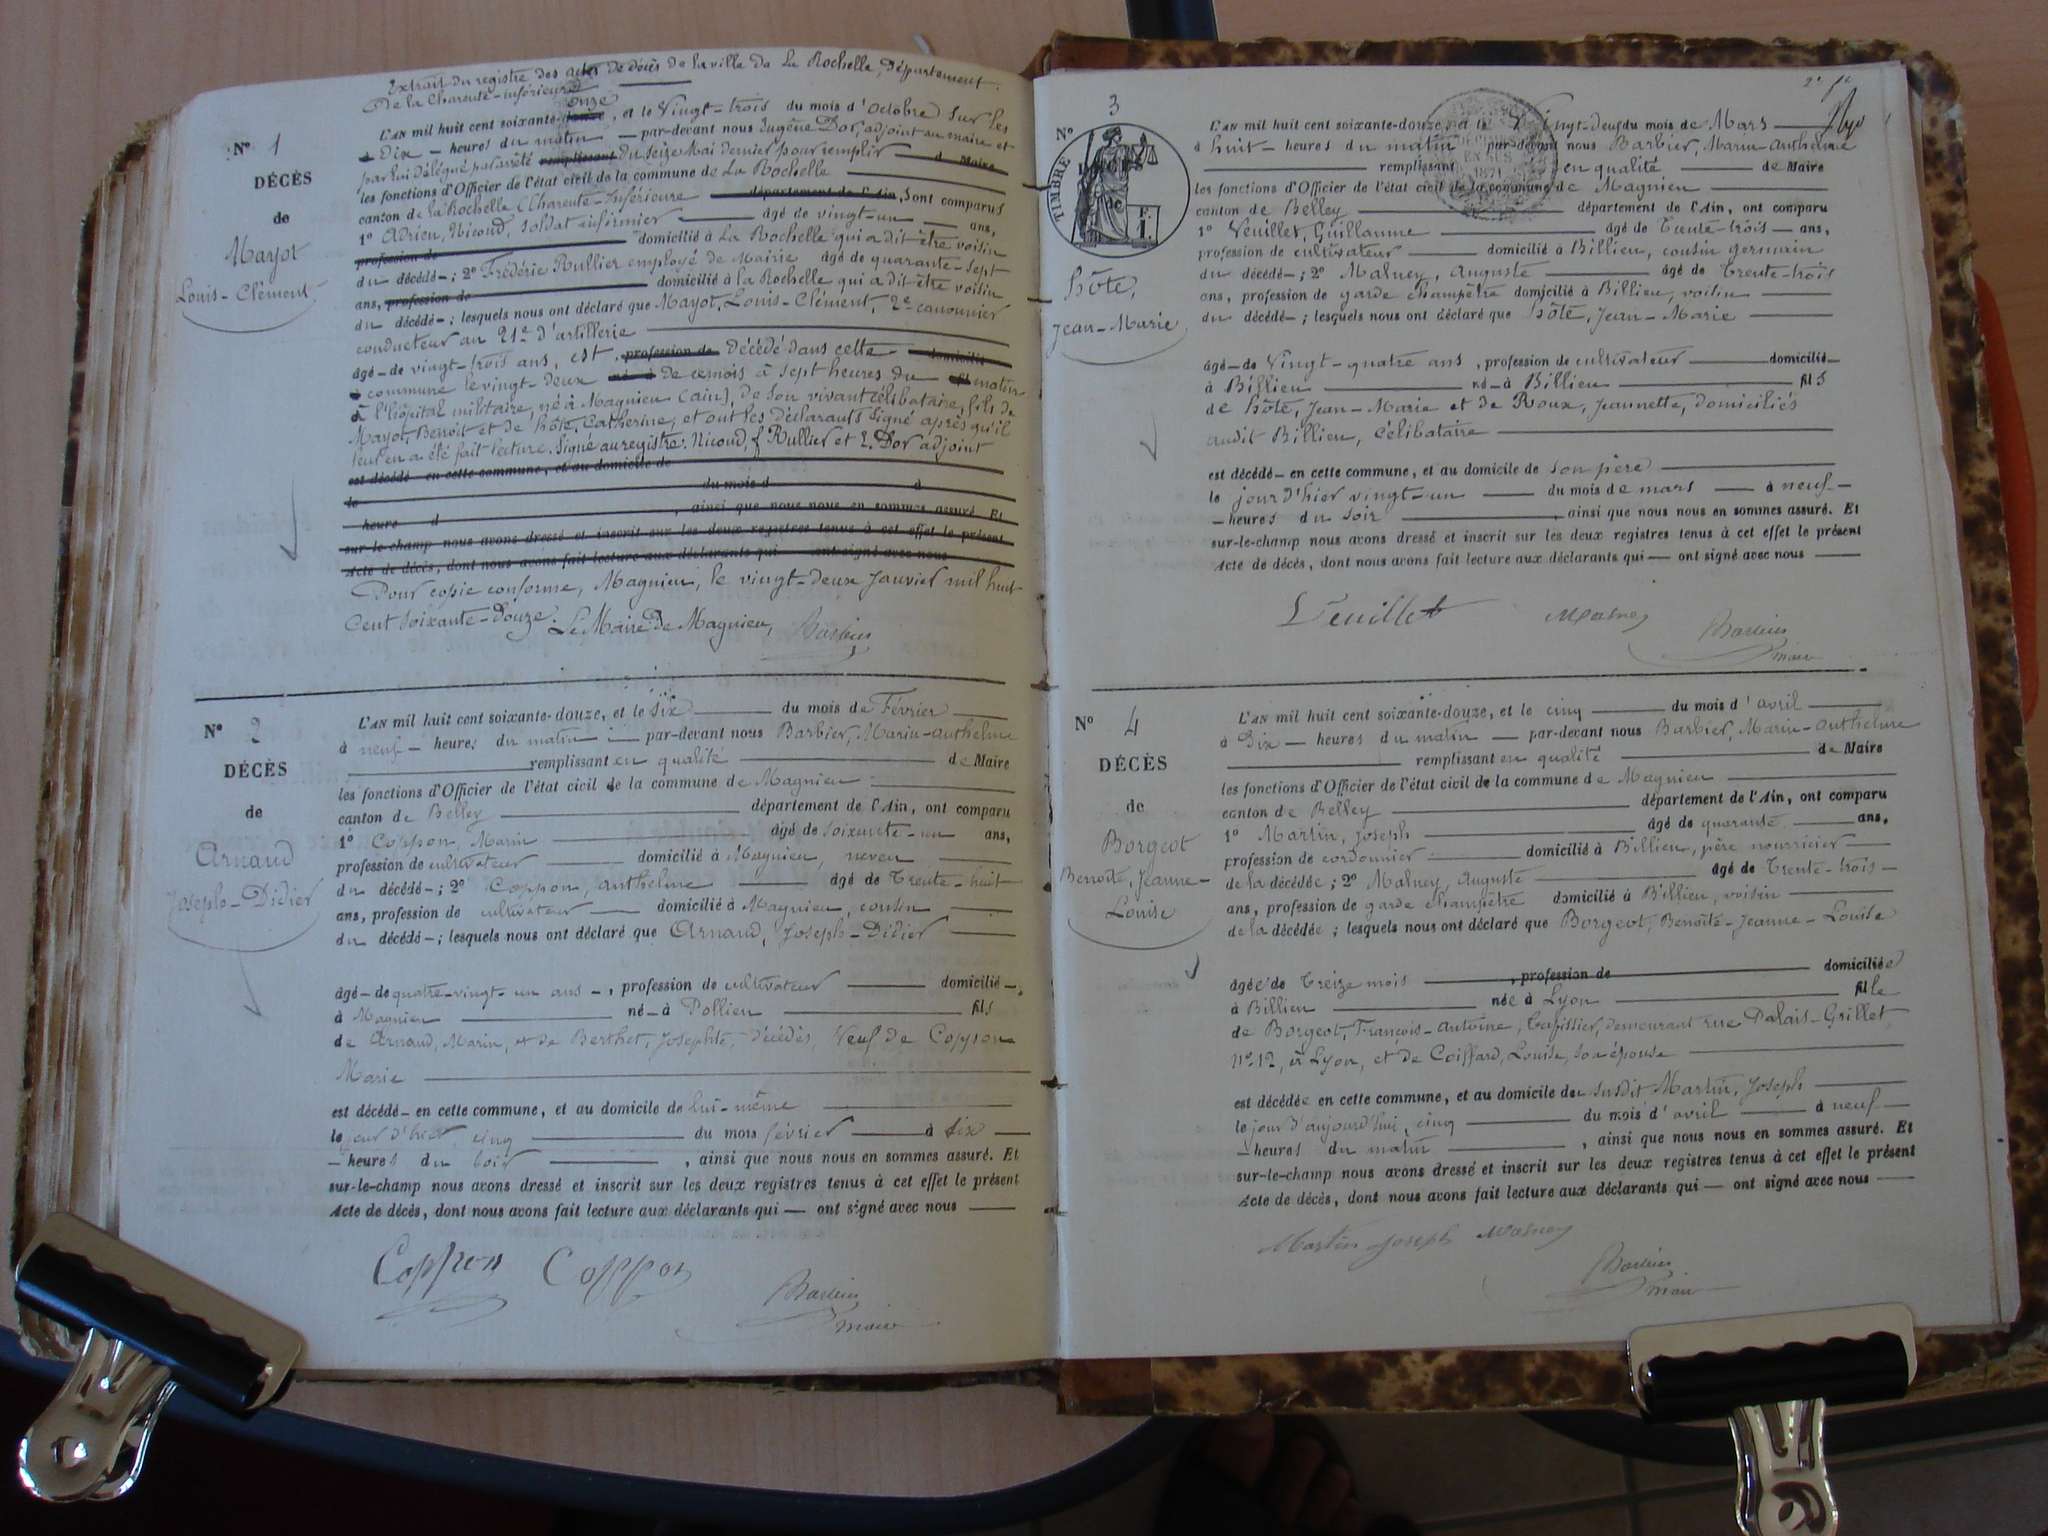 Extrait du registre des actes de décès de la ville de La Rochelle, Département
De la Charente-inférieure
onze
N° 1
DÉCÈS
de
Mayot
Louis-Clément
L'AN mil huit cent soixante-douze, et le Vingt-trois du mois d'Octobre sur les
à Dix heures du matin par-devant nous Eugène Dor, adjoint au maire et
par lui délégué par arrêté remplissant du seize Mai dernier pour remplir de Maire
les fonctions d'Officier de l'état civil de la commune de La Rochelle
canton de la Rochelle (Charente-Inférieure département de l'Ain, Sont comparus
1° Adrien, Nicoud, soldat infirmier âgé de vingt-un ans,
profession de domicilié à La Rochelle qui a dit être voisin
du décédé ; 2° Frédéric Rullier employé de Mairie âgé de quarante-sept
ans, profession de domicilié à la Rochelle qui a dit être voisin
du décédé ; lesquels nous ont déclaré que Mayot, Louis-Clément, 2e canonnier
conducteur au 21e d'artillerie
âgé de vingt-trois ans, est, profession de Décédé dans cette domicilié
à commune le vingt-deux né à De ce mois à sept heures du fils matin
à l'hôpital militaire, né à Magnieu (ain), de son vivant célibataire, fils de
Mayot, Benoit et de hôte, Catherine, et ont les Déclarants signé après qu'il
leur en a été fait lecture. Signé au registre: Nicoud, f Rullier et E. Dor adjoint
est décédé en cette commune, et au domicile de
le du mois d à
heure d , ainsi que nous nous en sommes assuré. Et
sur-le-champ nous avons dressé et inscrit sur les deux registres tenus à cet effet le présent
Acte de décès, dont nous avons fait lecture aux déclarants qui ont signé avec nous
Pour copie conforme, Magnieu, le vingt-deux Janvier mil huit
Cent soixante-Douze. Le Maire de Magnieu, Barbier
N° 2
DÉCÈS
de
Arnaud
Joseph-Didier
L'AN mil huit cent soixante-douze, et le six du mois de Février
à neuf heures du matin par-devant nous Barbier, Marin-anthelme
remplissant en qualité de Maire
les fonctions d'Officier de l'état civil de la commune de Magnieu
canton de Belley département de l'Ain, ont comparu
1° Coppon, Marin âgé de soixante-un ans,
profession de cultivateur domicilié à Magnieu, neveu
du décédé ; 2° Coppon, anthelme âgé de Trente-huit
ans, profession de cultivateur domicilié à Magnieu, cousin
du décédé ; lesquels nous ont déclaré que Arnaud, Joseph-Didier
âgé de quatre-vingt-un ans, profession de cultivateur domicilié
à Magnieu né à Pollieu fils
de Arnaud, Marin, et de Berthet, Josephte, Décédés, Veuf de Coppon
Marie
est décédé en cette commune, et au domicile de lui-même
le jour d'hier, cinq du mois février à six
heures du soir , ainsi que nous nous en sommes assuré. Et
sur-le-champ nous avons dressé et inscrit sur les deux registres tenus à cet effet le présent
Acte de décès, dont nous avons fait lecture aux déclarants qui ont signé avec nous
Coppon Coppon Barbier
maire
2e fe
N° 3
TIMBRE
F. 1.
1871
hôte,
Jean-Marie
L'AN mil huit cent soixante-douze, et le Vingt-deux du mois de Mars
à huit heures du matin par-devant nous Barbier, Marin-anthelme
remplissant en qualité de Maire
les fonctions d'Officier de l'état civil de la commune de Magnieu
canton de Belley département de l'Ain, ont comparu
1° Veuillet, Guillaume âgé de Trente-trois ans,
profession de cultivateur domicilié à Billieu, cousin germain
du décédé ; 2° Malney, Auguste âgé de Trente-trois
ans, profession de garde champêtre domicilié à Billieu, voisin
du décédé ; lesquels nous ont déclaré que hôte, Jean-Marie
âgé de Vingt-quatre ans, profession de cultivateur domicilié
à Billieu né à Billieu fils
de hôte, Jean-Marie et de Roux, Jeannette, domiciliés
audit Billieu, célibataire
est décédé en cette commune, et au domicile de son père
le jour d'hier vingt-un du mois de mars à neuf
heures du soir , ainsi que nous nous en sommes assuré. Et
sur-le-champ nous avons dressé et inscrit sur les deux registres tenus à cet effet le présent
Acte de décès, dont nous avons fait lecture aux déclarants qui ont signé avec nous
Veuillet Malney Barbier
maire
N° 4
DÉCÈS
de
Borgeot
Benoîte, Jeanne-
Louise
L'AN mil huit cent soixante-douze, et le cinq du mois d'avril
à Dix heures du matin par-devant nous Barbier, Marin-anthelme
remplissant en qualité de Maire
les fonctions d'Officier de l'état civil de la commune de Magnieu
canton de Belley département de l'Ain, ont comparu
1° Martin, Joseph âgé de quarante ans,
profession de cordonnier domicilié à Billieu, père nourricier
de la décédée ; 2° Malney, Auguste âgé de Trente-trois
ans, profession de garde champêtre domicilié à Billieu, voisin
de la décédée ; lesquels nous ont déclaré que Borgeot, Benoîte-Jeanne-Louise
âgée de Treize mois , profession de domiciliée
à Billieu née à Lyon fille
de Borgeot, François-Antoine, Tapissier, demeurant rue Palais-Grillet
N° 12, à Lyon, et de Coiffard, Louise, son épouse
est décédée en cette commune, et au domicile du susdit Martin, Joseph
le jour d'aujourd'hui, cinq du mois d'avril à neuf
heures du matin , ainsi que nous nous en sommes assuré. Et
sur-le-champ nous avons dressé et inscrit sur les deux registres tenus à cet effet le présent
Acte de décès, dont nous avons fait lecture aux déclarants qui ont signé avec nous
Martin Joseph Malney
Barbier
maire